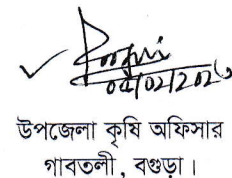 04/02/2026
উপজেলা কৃষি অফিসার
গাবতলী, বগুড়া।